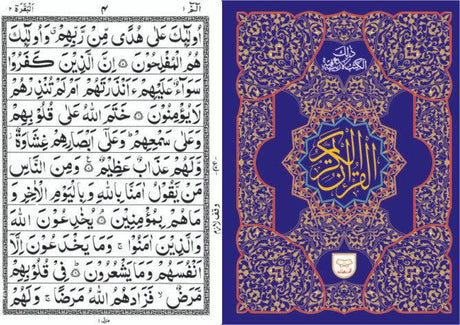 الٓمّٓ ١
٤
البقرة ٢
اُولٰٓئِكَ عَلٰى هُدًى مِّنْ رَّبِّهِمْ ۙ وَاُولٰٓئِكَ
هُمُ الْمُفْلِحُوْنَ ۝ اِنَّ الَّذِيْنَ كَفَرُوْا
سَوَآءٌ عَلَيْهِمْ ءَاَنْذَرْتَهُمْ اَمْ لَمْ تُنْذِرْهُمْ
لَا يُؤْمِنُوْنَ ۝ خَتَمَ اللّٰهُ عَلٰى قُلُوْبِهِمْ
وَعَلٰى سَمْعِهِمْ ؕ وَعَلٰٓى اَبْصَارِهِمْ غِشَاوَةٌ
وَّلَهُمْ عَذَابٌ عَظِيْمٌ ۝ وَمِنَ النَّاسِ
مَنْ يَّقُوْلُ اٰمَنَّا بِاللّٰهِ وَبِالْيَوْمِ الْاٰخِرِ وَ
مَا هُمْ بِمُؤْمِنِيْنَ ۝ يُخٰدِعُوْنَ اللّٰهَ
وَالَّذِيْنَ اٰمَنُوْا ۚ وَمَا يَخْدَعُوْنَ اِلَّآ
اَنْفُسَهُمْ وَمَا يَشْعُرُوْنَ ۝ فِيْ قُلُوْبِهِمْ
مَّرَضٌ ۙ فَزَادَهُمُ اللّٰهُ مَرَضًا ۚ وَلَهُمْ
وقف لازم
منزل ١
ذٰلك الكتاب لا ريب فيه
القرآن الكريم